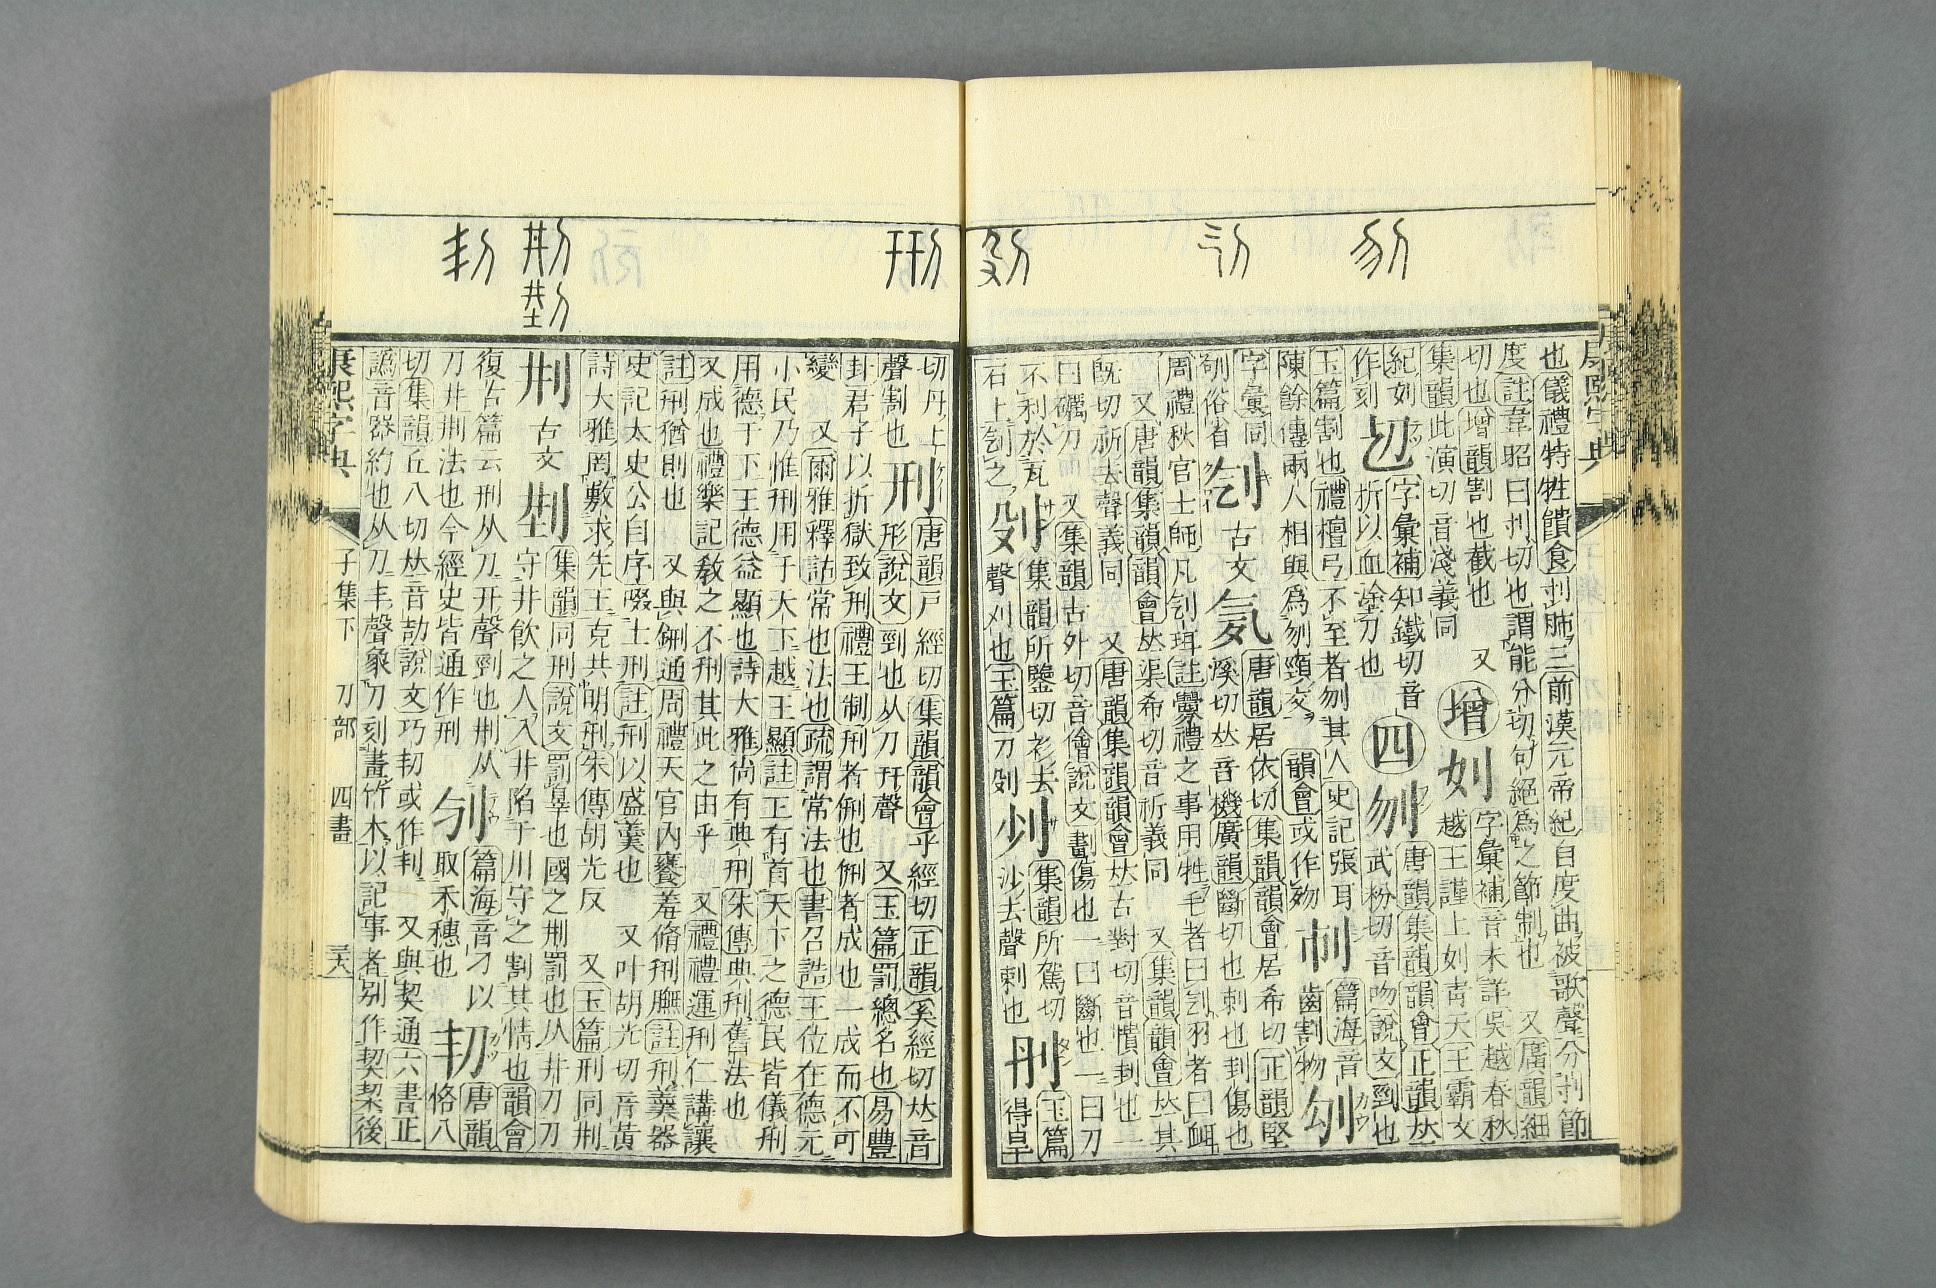 也儀禮特牲饋食刲肺三前漢元帝紀自度曲被歌聲分刌節
度註韋昭曰刌切也謂能分切句絕爲之節制也 又廣韻細
切也增韻割也截也 又
集韻此演切音淺義同
增 刎 字彙補音未詳吳越春秋
越王謹上刎靑天王霸女
紀刎
作刻
刉 字彙補知鐵切音
折以血塗刀也
四 刎 唐韻集韻韻會正韻𠀤
武粉切音吻說文剄也
玉篇割也禮檀弓不至者刎其人史記張耳
陳餘傳兩人相與爲刎頸交 韻會或作歾
篇海音
齒割物
字彙同
刏俗省
刉 古文 唐韻居依切集韻韻會居希切正韻堅
溪切𠀤音機廣韻斷切也刺也刲傷也
周禮秋官士師凡刉珥註釁禮之事用牲毛者曰刉羽者曰衈
又唐韻集韻韻會𠀤渠希切音祈義同 又集韻韻會𠀤其
旣切祈去聲義同 又唐韻集韻韻會𠀤古對切音憒刲也一
曰礪刀 又集韻古外切音儈說文劃傷也一曰斷也一曰刀
不利於瓦
石上刉之
集韻所鑒切衫去
聲刈也玉篇刀
集韻所駕切
沙去聲剌也
玉篇
得皇
切丹上
聲割也
刑 唐韻戸經切集韻韻會乎經切正韻奚經切𠀤音
形說文剄也从刀幵聲 又玉篇罰總名也易豐
封君子以折獄致刑禮王制刑者侀也侀者成也一成而不可
變 又爾雅釋詁常也法也疏謂常法也書召誥王位在德元
小民乃惟刑用于天下越王顯註正有首天下之德民皆儀刑
用德于下王德益顯也詩大雅尙有典刑朱傳典刑舊法也
又成也禮樂記敎之不刑其此之由乎 又禮禮運刑仁講讓
註刑猶則也 又與鉶通周禮天官內饔羞脩刑膴註刑羹器
史記太史公自序啜土刑註刑以盛羹也 又叶胡光切音黃
詩大雅罔敷求先王克共明刑朱傳胡光反 又玉篇刑同㓝
㓝 古文 集韻同刑說文罰辠也國之㓝罰也从井刀刀
守井飮之人入井陷于川守之割其情也韻會
復古篇云刑从刀幵聲剄也㓝从
刀井㓝法也今經史皆通作刑
篇海音刁以
取禾穗也
㓞 唐韻
恪八
切集韻丘八切𠀤音劼說文巧㓞或作 又與契通六書正
譌音器約也从刀丰聲象刀刻畫竹木以記事者別作契栔後
康熙字典
子集下 刀部 四畫
康熙字典